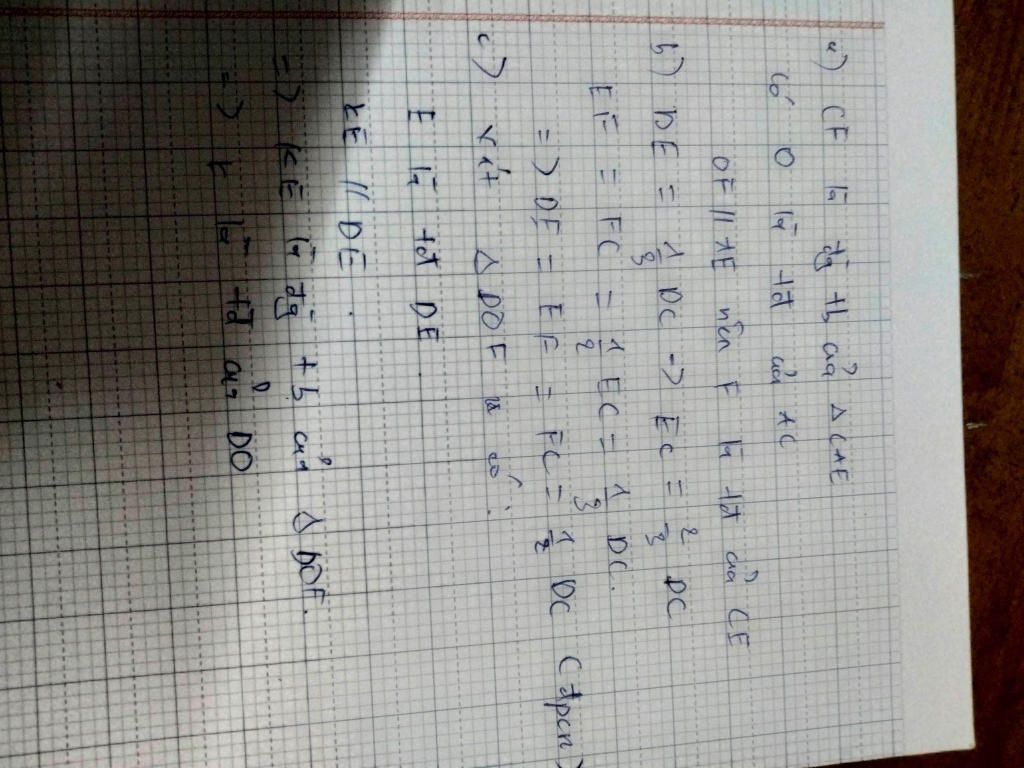 a) CF là đg tb của Δ CAE
Có O là tđ của AC
OF // AE nên F là tđ của CE
b) DE = 1/3 DC -> EC = 2/3 DC
EF = FC = 1/2 EC = 1/3 DC.
=> DE = EF = FC = 1/3 DC (đpcm)
c) Xét Δ DOF có:
E là tđ DF
KE // DE.
=> KE là đg tb của Δ DOF.
=> K là tđ của DO